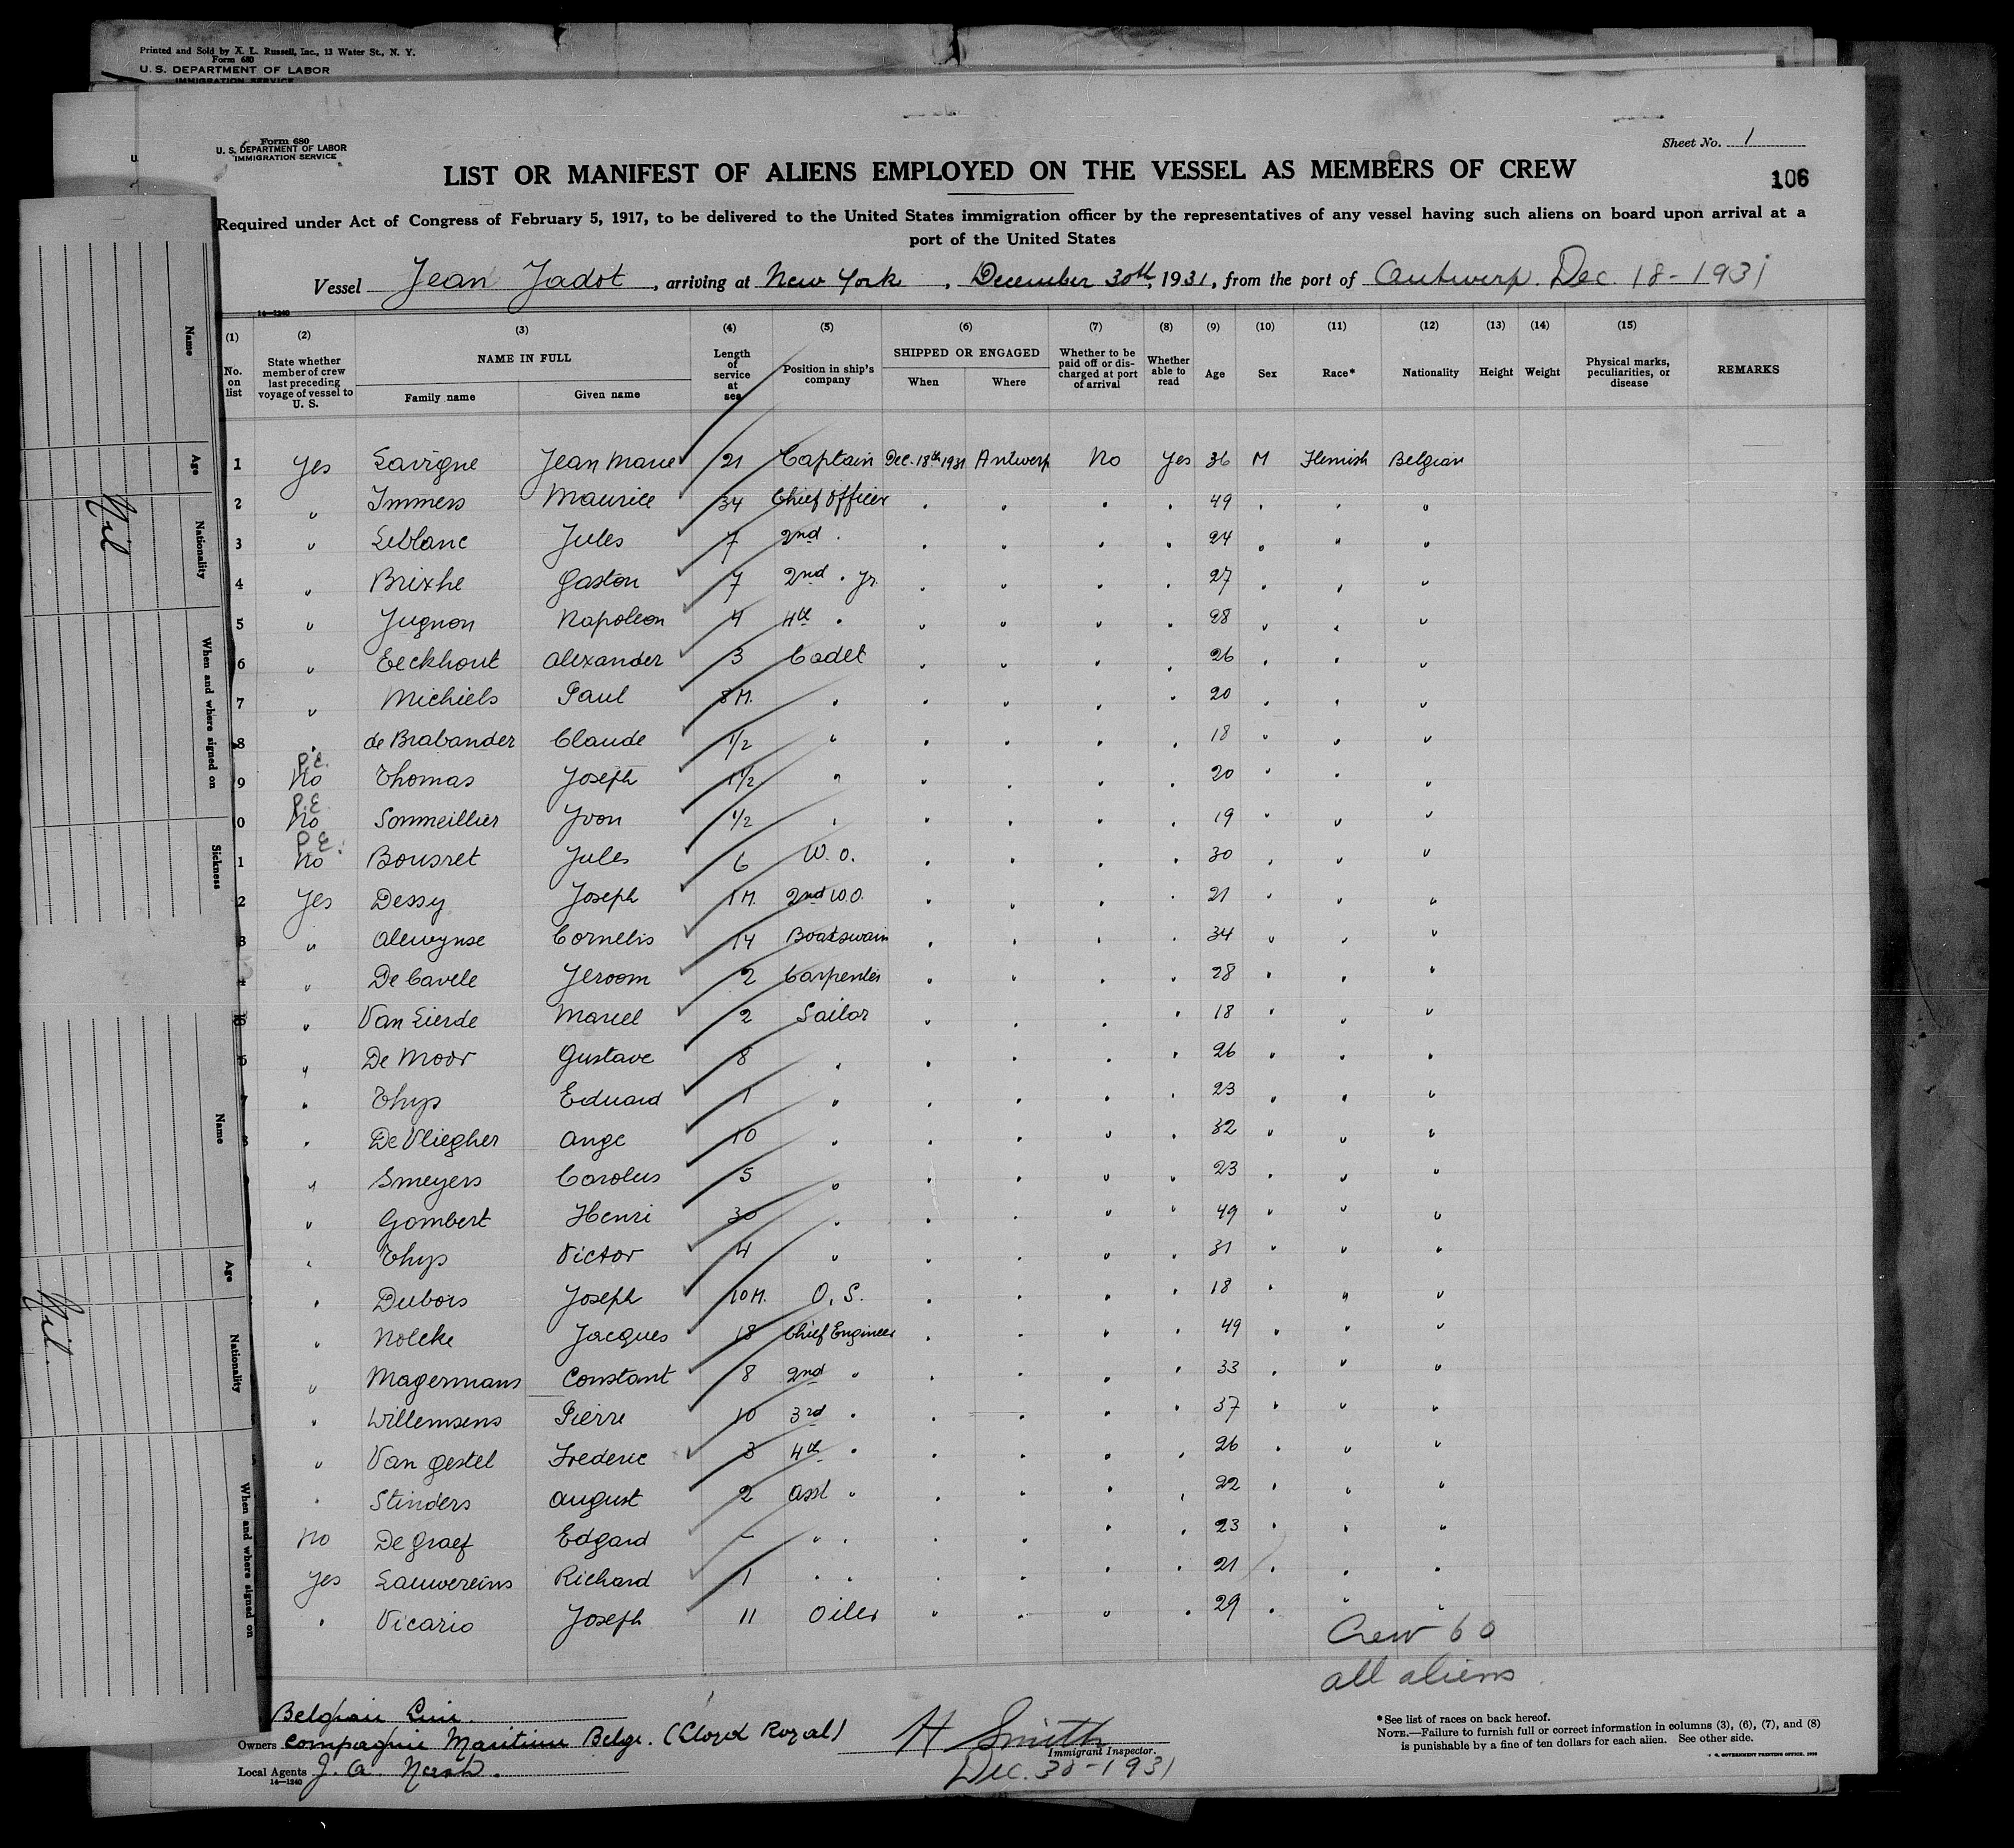 Printed and Sold by X. L. Russell, Inc., 13 Water St., N. Y.
Form 680
U. S. DEPARTMENT OF LABOR
IMMIGRATION SERVICE
Form 680
U. S. DEPARTMENT OF LABOR
IMMIGRATION SERVICE
Sheet No. 1
LIST OR MANIFEST OF ALIENS EMPLOYED ON THE VESSEL AS MEMBERS OF CREW
106
Required under Act of Congress of February 5, 1917, to be delivered to the United States immigration officer by the representatives of any vessel having such aliens on board upon arrival at a
port of the United States
Vessel Jean Jadot, arriving at New York, December 30th, 1931, from the port of Antwerp. Dec. 18-1931
14—1240
(1) (2) (3) (4) (5) (6) (7) (8) (9) (10) (11) (12) (13) (14) (15)
No. on list State whether member of crew last preceding voyage of vessel to U. S. NAME IN FULL Family name Given name Length of service at sea Position in ship's company SHIPPED OR ENGAGED When Where Whether to be paid off or discharged at port of arrival Whether able to read Age Sex Race* Nationality Height Weight Physical marks, peculiarities, or disease REMARKS
1 Yes Lavigne Jean Marie 21 Captain Dec. 18th 1931 Antwerp No Yes 36 M Flemish Belgian
2 " Immers Maurice 34 Chief Officer " " " " 49 " " "
3 " Leblanc Jules 7 2nd " " " " " 24 " " "
4 " Brixhe Gaston 7 2nd " Jr. " " " " 27 " " "
5 " Jugnon Napoleon 4 4th " " " " " 28 " " "
6 " Eeckhout Alexander 3 Cadet " " " " 26 " " "
7 " Michiels Paul 8 M. " " " " " 20 " " "
8 " de Brabander Claude 1/2 " " " " " 18 " " "
9 P.E. No Thomas Joseph 1 1/2 " " " " " 20 " " "
0 P.E. No Sommeillier Yvon 1/2 " " " " " 19 " " "
1 P.E. No Bousret Jules 6 W. O. " " " " 30 " " "
2 Yes Dessy Joseph 1 M. 2nd W.O. " " " " 21 " " "
3 " Alewynse Cornelis 14 Boatswain " " " " 34 " " "
4 " De Cavele Jeroom 2 Carpenter " " " " 28 " " "
5 " Van Lierde Marcel 2 Sailor " " " " 18 " " "
" De Moor Gustave 8 " " " " " 26 " " "
" Thys Eduard 1 " " " " " 23 " " "
" De Vliegher Ange 10 " " " " " 32 " " "
" Smeyers Carolus 5 " " " " " 23 " " "
" Gombert Henri 30 " " " " " 49 " " "
" Thys Victor 4 " " " " " 31 " " "
" Dubois Joseph 10 M. O. S. " " " " 18 " " "
" Nolcke Jacques 18 Chief Engineer " " " " 49 " " "
" Magermans Constant 8 2nd " " " " " 33 " " "
" Willemsens Pierre 10 3rd " " " " " 37 " " "
" Van Gestel Frederic 3 4th " " " " " 26 " " "
" Stinders August 2 Asst " " " " " 22 " " "
No De Graef Edgard - " " " " " " 23 " " "
Yes Lauwereins Richard 1 " " " " " " 21 " " "
" Vicario Joseph 11 Oiler " " " " 29 " " "
Crew 60
all aliens
Belgian Line.
Owners Compagnie Maritime Belge. (Lloyd Royal)
Local Agents J. A. Nash.
14—1240
H Smith
Immigrant Inspector.
Dec. 30-1931
*See list of races on back hereof.
NOTE.—Failure to furnish full or correct information in columns (3), (6), (7), and (8)
is punishable by a fine of ten dollars for each alien. See other side.
Name
Age
Nationality
When and where signed on
Sickness
Nil
Name
Age
Nationality
When and where signed on
Nil.